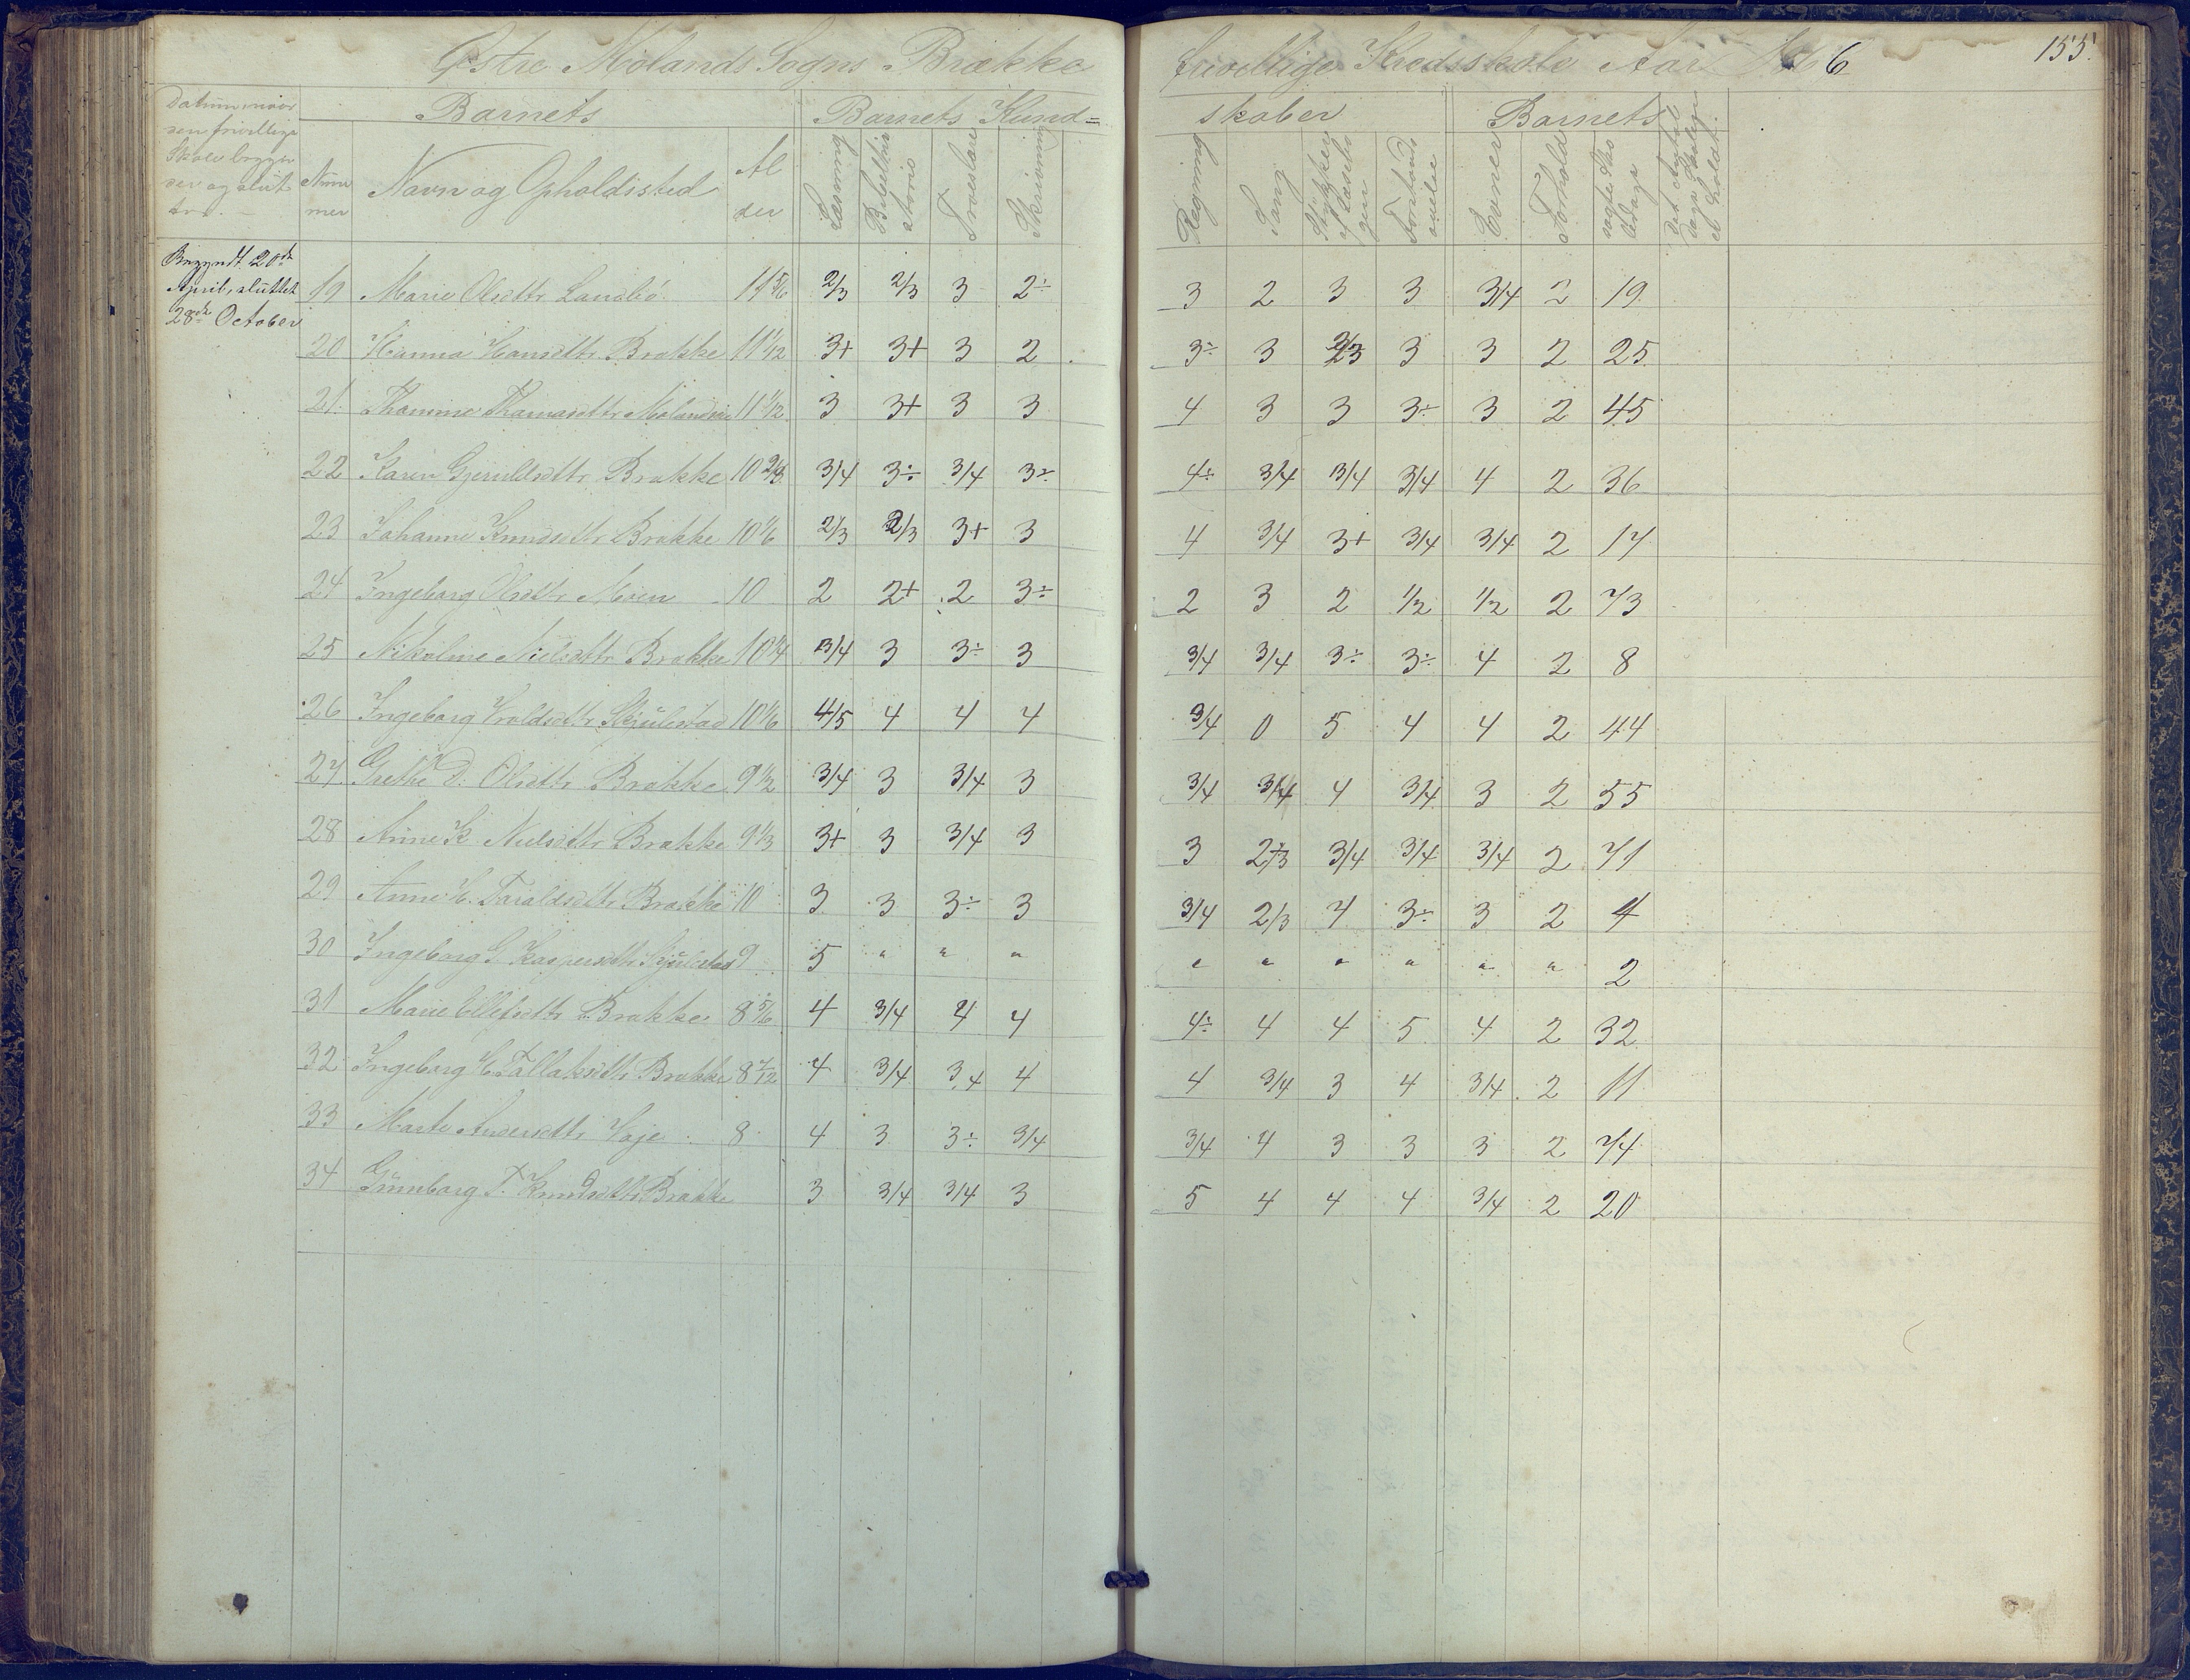 Østre Molands Sogns Brække frivillige Kredsskole Aar 6 155.
Datum, naar den frivillige Skole begynder og sluttes.
Barnets
Nummer
Navn og Opholdssted
Alder
Barnets Kundskaber
Læsning
Bibelhistorie
Troeslære
Skrivning
Regning
Sang
Stykker af Læsebogen
Forstandsøvelse
Barnets
Evner
Forhold
søgte Skoledage
Det Antal Dage Skolen er holdt.
Begyndt 20de
April, sluttet
28de October
19 Marie Olsdttr Landbö 11 5/6 2/3 2/3 3 2÷ 3 2 3 3 3/4 2 19
20 Hanna Hansdttr Brække 11 1/12 3+ 3+ 3 2 3÷ 3 2/3 3 3 2 25
21 Thamine Thamasdttr 11 1/12 3 3+ 3 3 4 3 3 3÷ 3 2 45
22 Karen Gjeruldsdttr Brakke 10 3/4 3÷ 3/4 3÷ 4÷ 3/4 3/4 3/4 4 2 36
23 Johanne Knudsdttr Brakke 10 1/6 2/3 2/3 3+ 3 4 3/4 3+ 3/4 3/4 2 17
24 Ingeborg Olsdttr Moen 10 2 2+ 2 3÷ 2 3 2 1/2 1/2 2 73
25 Nikoline Nielsdttr Brakke 10 1/4 3/4 3 3÷ 3 3/4 3/4 3÷ 3÷ 4 2 8
26 Ingeborg Skjulestad 10 1/6 4/5 4 4 4 3/4 0 5 4 4 2 44
27 Grethe D. Olsdttr Brakke 9 1/2 3/4 3 3/4 3 3/4 3/4 4 3/4 3 2 55
28 Anne K. Nielsdttr Brakke 9 1/3 3+ 3 3/4 3 3 2/3 3/4 3/4 3/4 2 71
29 Anne Taraldsdttr Brakke 10 3 3 3÷ 3 3/4 2/3 4 3÷ 3 2 4
30 Ingeborg Kaspersdttr Skjulestad 9 5 " " " " " " " " " 2
31 Marie Ellefsdttr Brakke 8 5/6 4 3/4 4 4 4÷ 4 4 5 4 2 32
32 Ingeborg Tallaksdttr Brakke 8 7/12 4 3/4 3+ 4 4 3/4 3 4 3/4 2 11
33 Marte Andersdttr Haje 8 4 3 3÷ 3/4 3/4 4 3 3 3 2 74
34 Gunnborg T. Knudsdttr Brakke 3 3/4 3/4 3 5 4 4 4 3/4 2 20